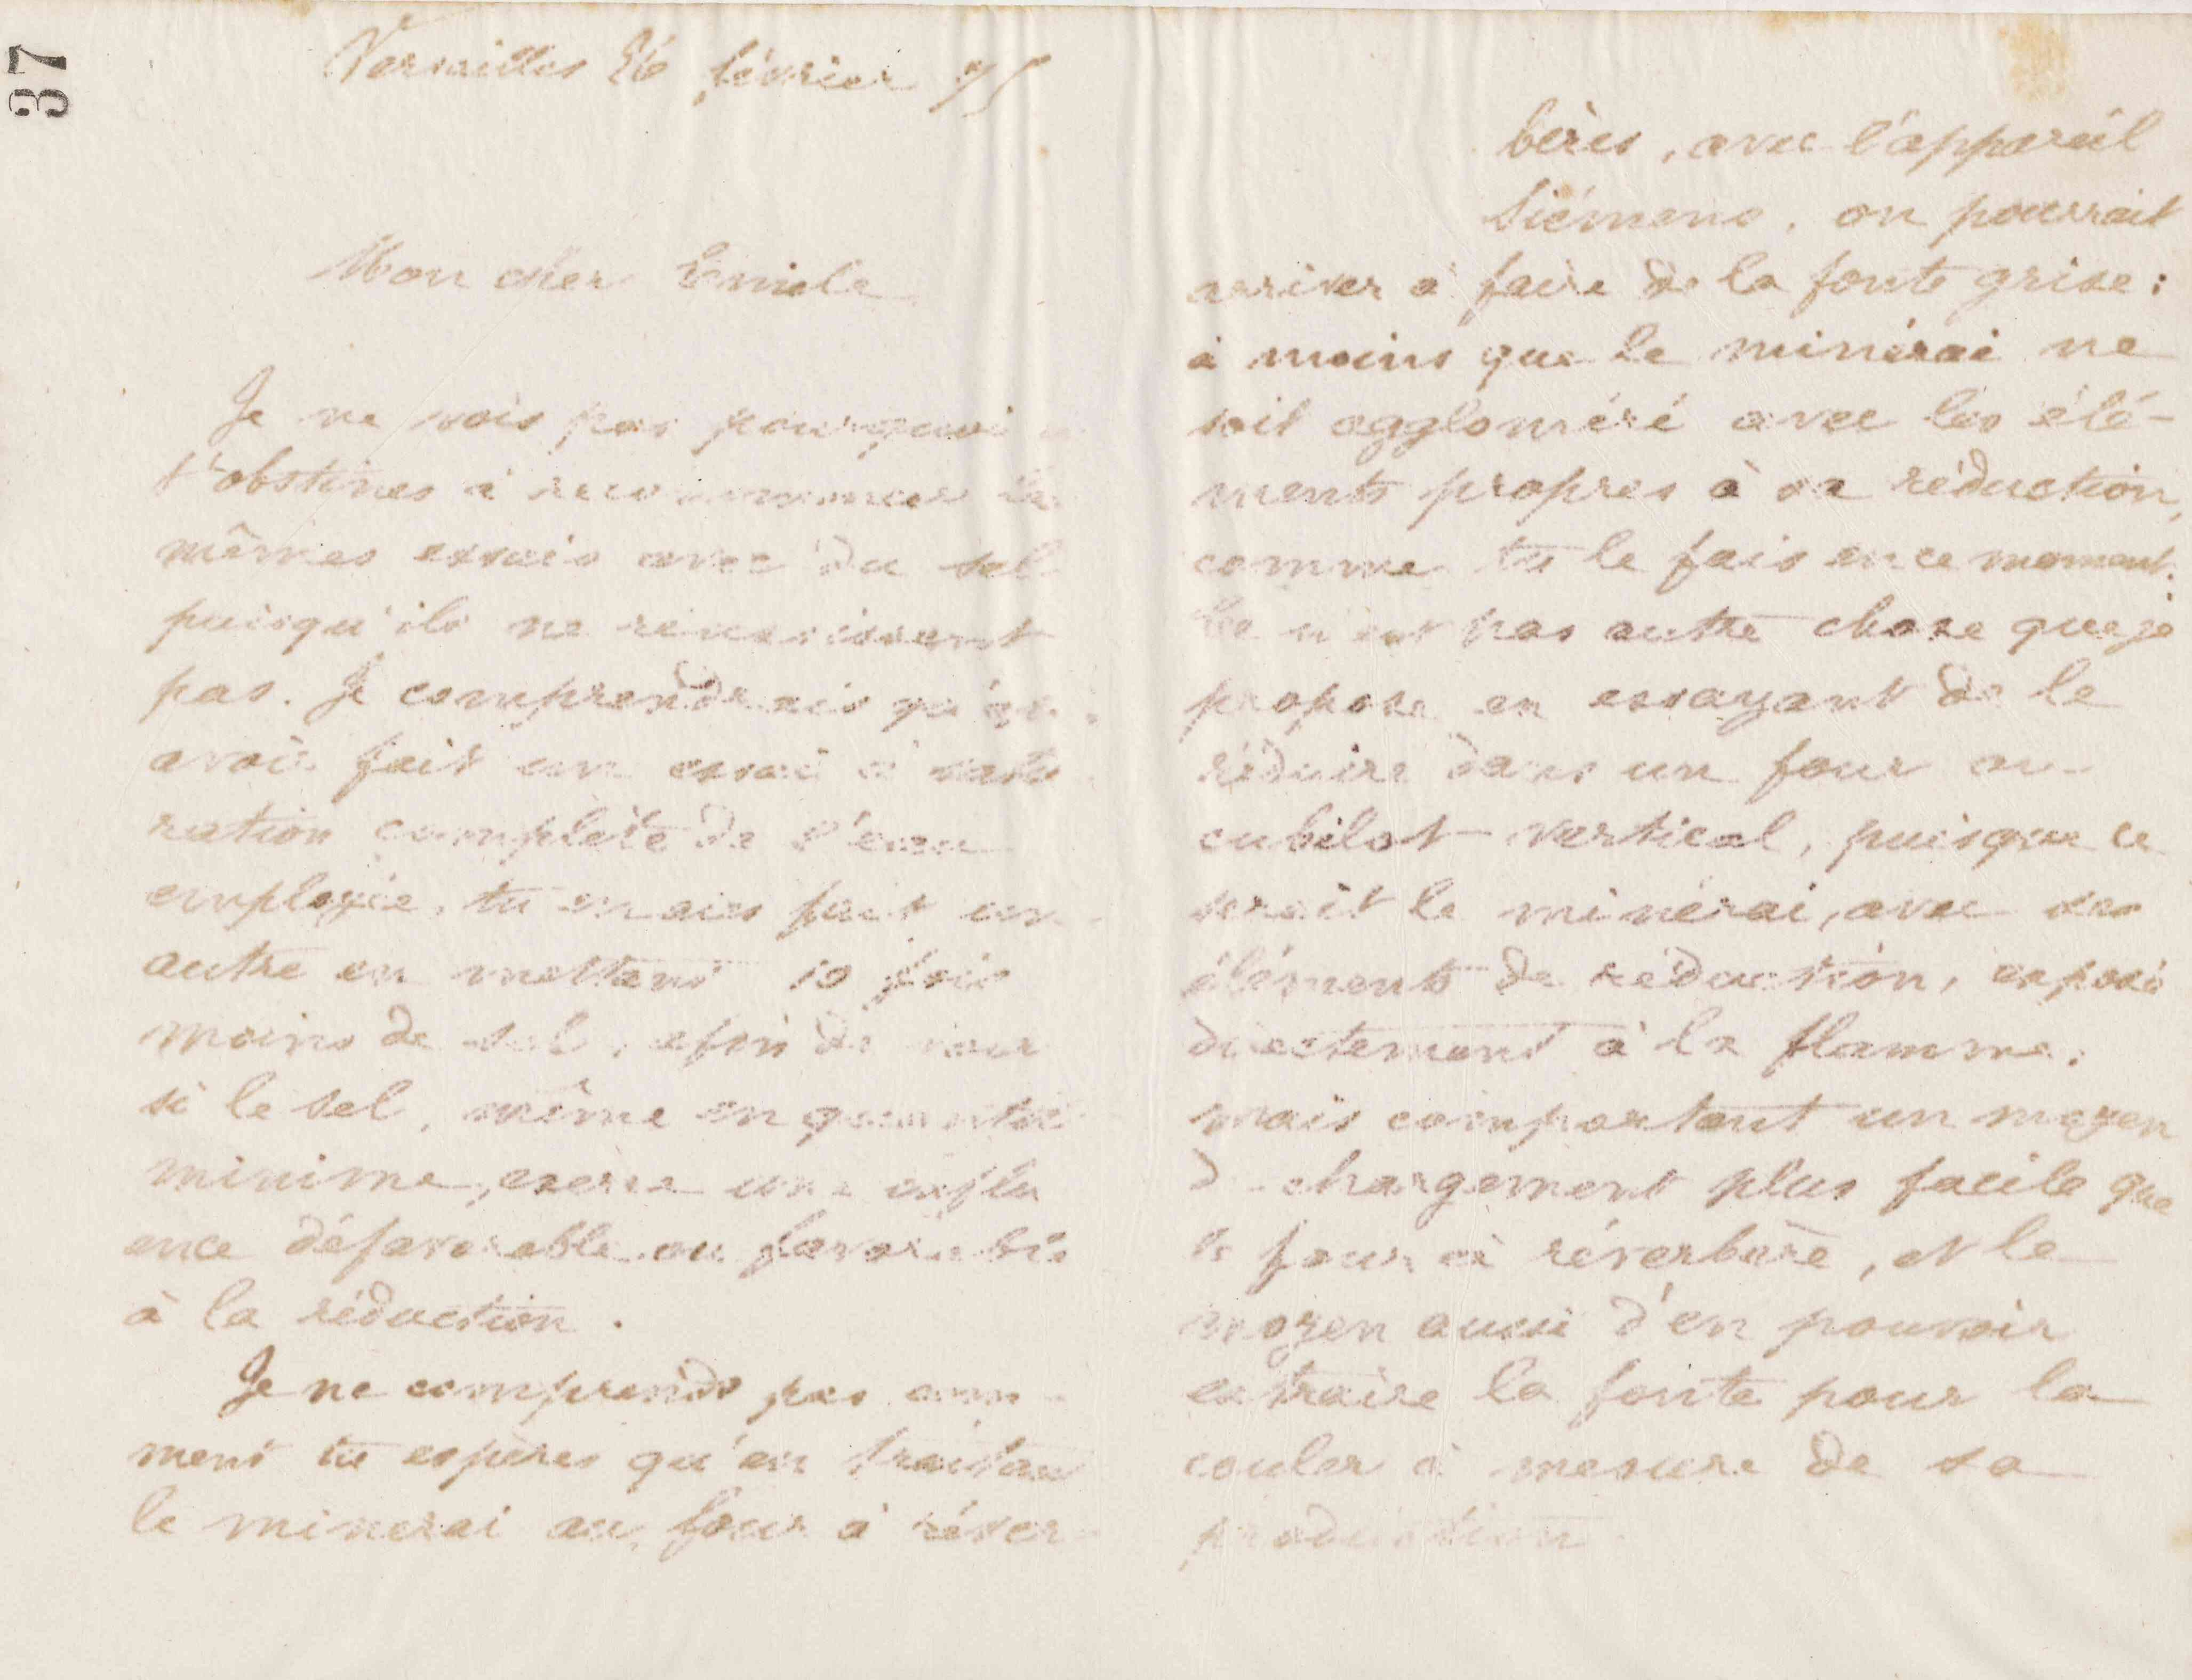 37
Versailles 26 février 75
Mon cher Emile
Je ne vois pas pourquoi
t'obstines à recommencer les
mêmes essais avec du sel
puisqu'ils ne réussissent
pas. Je comprendrais qu'
avoir fait un essai à satu
ration complète de l'eau
employée, tu en aies fait un
autre en mettant 10 fois
moins de sel, afin de voir
si le sel, même en quantité
minime, exerce une influ
ence défavorable ou favorable
à la réduction.
Je ne comprends pas com
ment tu espères qu'en traitant
le minerai au four à réver
bères, avec l'appareil
Siémens, on pourrait
arriver à faire de la fonte grise;
à moins que le minérai ne
soit aggloméré avec les élé-
ments propres à sa réduction,
comme tu le fais en ce moment.
Ce n'est pas autre chose que je
propose en essayant de le
réduire dans un four ou
cubilot vertical, puisque ce
serait le minérai, avec ses
éléments de réduction, exposé
directement à la flamme;
mais comportant un moyen
de chargement plus facile que
le four à réverbère, et le
moyen aussi d'en pouvoir
extraire la fonte pour la
couler à mesure de sa
production